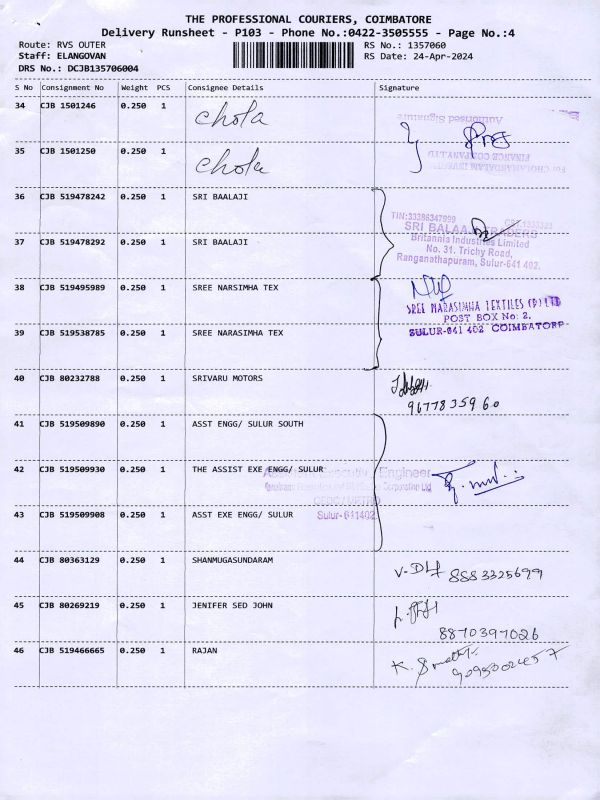 THE PROFESSIONAL COURIERS, COIMBATORE
Delivery Runsheet - P103 - Phone No.:0422-3505555 - Page No.:4
Route: RVS OUTER RS No.: 1357060
Staff: ELANGOVAN RS Date: 24-Apr-2024
DRS No.: DCJB135706004
S No Consignment No Weight PCS Consignee Details Signature
34 CJB 1501246 0.250 1 chola
Authorised Signature
35 CJB 1501250 0.250 1 chola
FINANCE COMPANY LTD
36 CJB 519478242 0.250 1 SRI BAALAJI
TIN:33386347999
SRI BALAAJI TRADERS
37 CJB 519478292 0.250 1 SRI BAALAJI
Britannia Industries Limited
No. 31. Trichy Road,
Ranganathapuram, Sulur-641 402.
38 CJB 519495989 0.250 1 SREE NARSIMHA TEX
SREE NARASIMHA TEXTILES (P) LTD
POST BOX No: 2.
SULUR-641 402 COIMBATORE
39 CJB 519538785 0.250 1 SREE NARASIMHA TEX
40 CJB 80232788 0.250 1 SRIVARU MOTORS
9677835960
41 CJB 519509890 0.250 1 ASST ENGG/ SULUR SOUTH
42 CJB 519509930 0.250 1 THE ASSIST EXE ENGG/ SULUR
Executive Engineer
Corporation Ltd
43 CJB 519509908 0.250 1 ASST EXE ENGG/ SULUR
Sulur-611402
44 CJB 80363129 0.250 1 SHANMUGASUNDARAM
8883325699
45 CJB 80269219 0.250 1 JENIFER SED JOHN
8870397026
46 CJB 519466665 0.250 1 RAJAN
9095002457